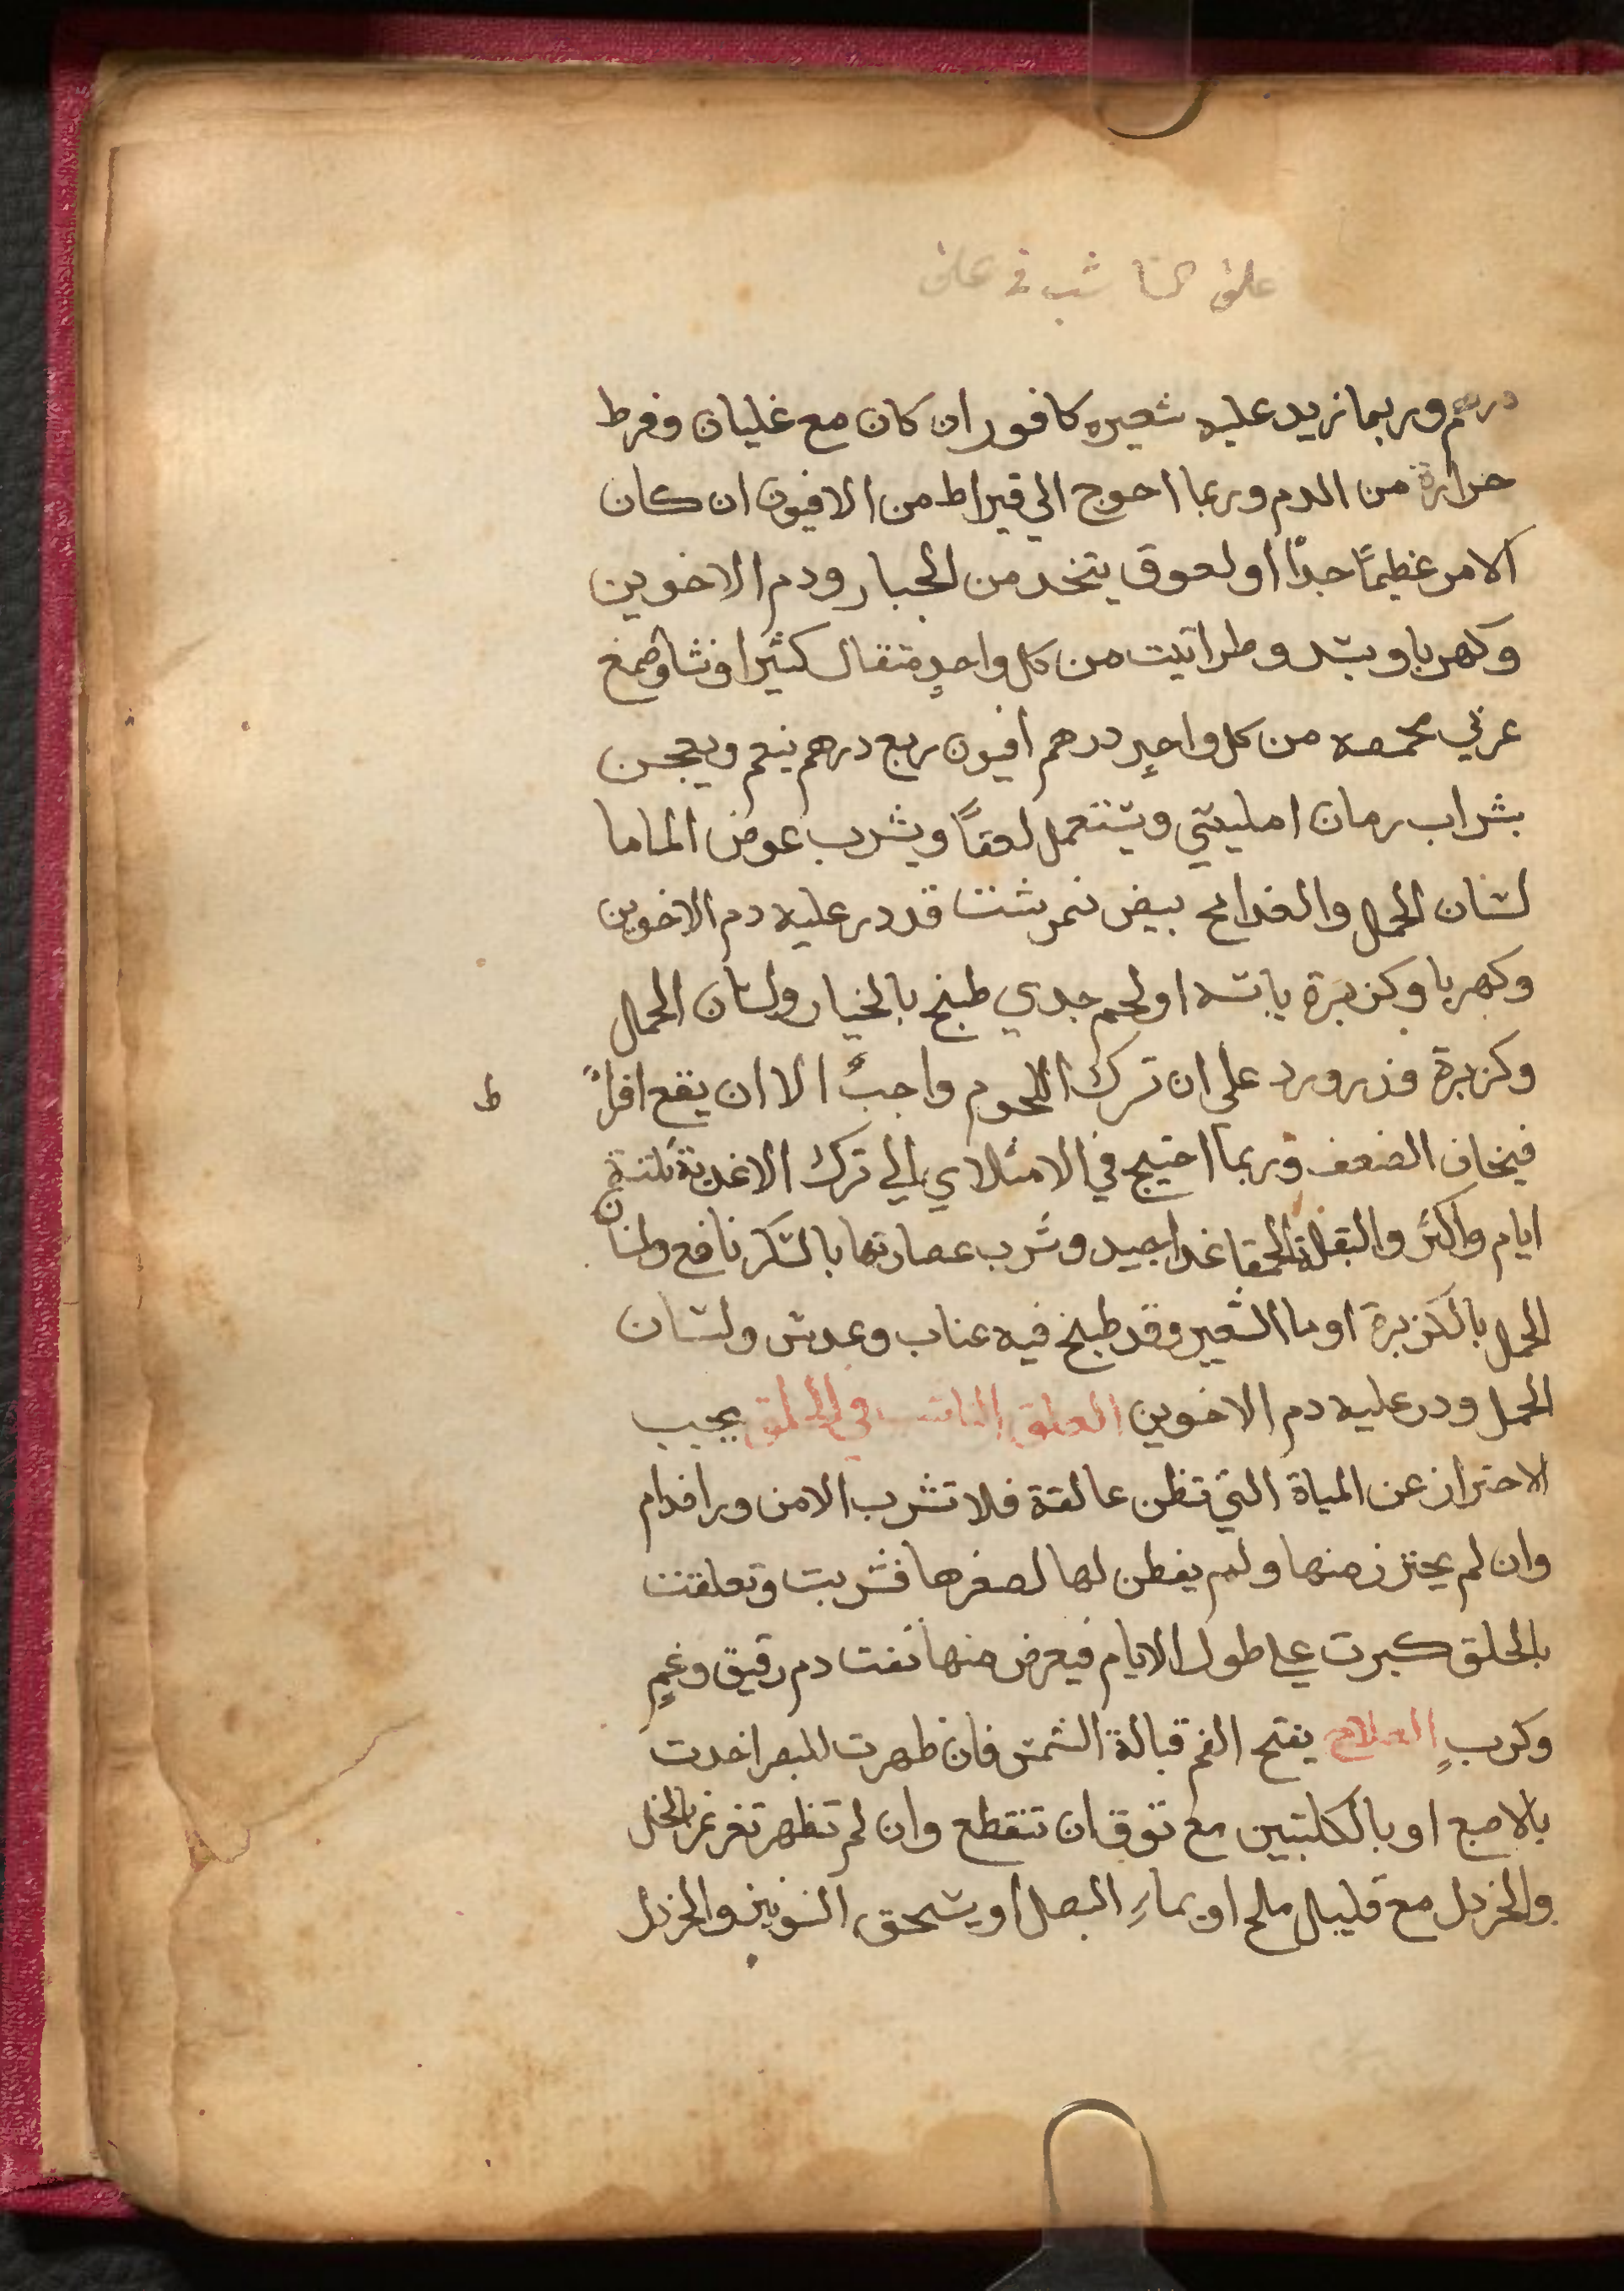 علق الناشب في علق
درهم وربما زيد عليه شعيره كافور ان كان مع غليان وفرط
حرارة من الدم وربما احوج الي قيراط من الافيون ان كان
الامر عظيمًا جدًا او لعوق يتخد من الجبار ودم الاخوين
وكهربا وبسد وطراتيت من كل واحدٍ متقال كثيرا ونشا وصمغ
عربي محمصه من كل واحدٍ درهم افيون ربع درهم ينعم ويعجن
بشراب رمان امليسي ويستعمل لعقاً ويشرب عوض الما ما
لسان الحمل والغدا مح بيض نمرشت قد در عليه دم الاخوين
وكهربا وكزبرة يابسه او لحم جدي طبخ بالخيار ولسان الحمل
وكزبرة فذرورد علي ان ترك اللحوم واجبٌ الا ان يقع افراً
ط
فيخاف الضعف وربما احتيج في الامتلاي الي ترك الاغدية ثلثة
ايام واكثر والبقلة الحمقا غدا جيد وشرب عصارتها بالسكر نافع ولسان
الحمل بالكزبرة او ما الشعير وقد طبخ فيه عناب وعدس ولسان
الحمل ودر عليه دم الاخوين العلق الناشب في الحلق يجب
الاحتراز عن المياة التي تظن عالقة فلا تشرب الا من ورا فدام
وان لم يحترز منها ولم يفطن لها لصغرها فشربت وتعلقت
بالحلق كبرت علي طول الايام فيعرض منها نفت دم رقيق وغمٍ
وكربٍ العلاج يفتح الفم قبالة الشمس فان ظهرت للبصر اخدت
بالاصبع او بالكلبتين مع توق ان تنقطع وان لم تظهر تغرغر بالخل
والخردل مع قليل ملح او بماءِ البصل او يسحق الشونيز والخردل